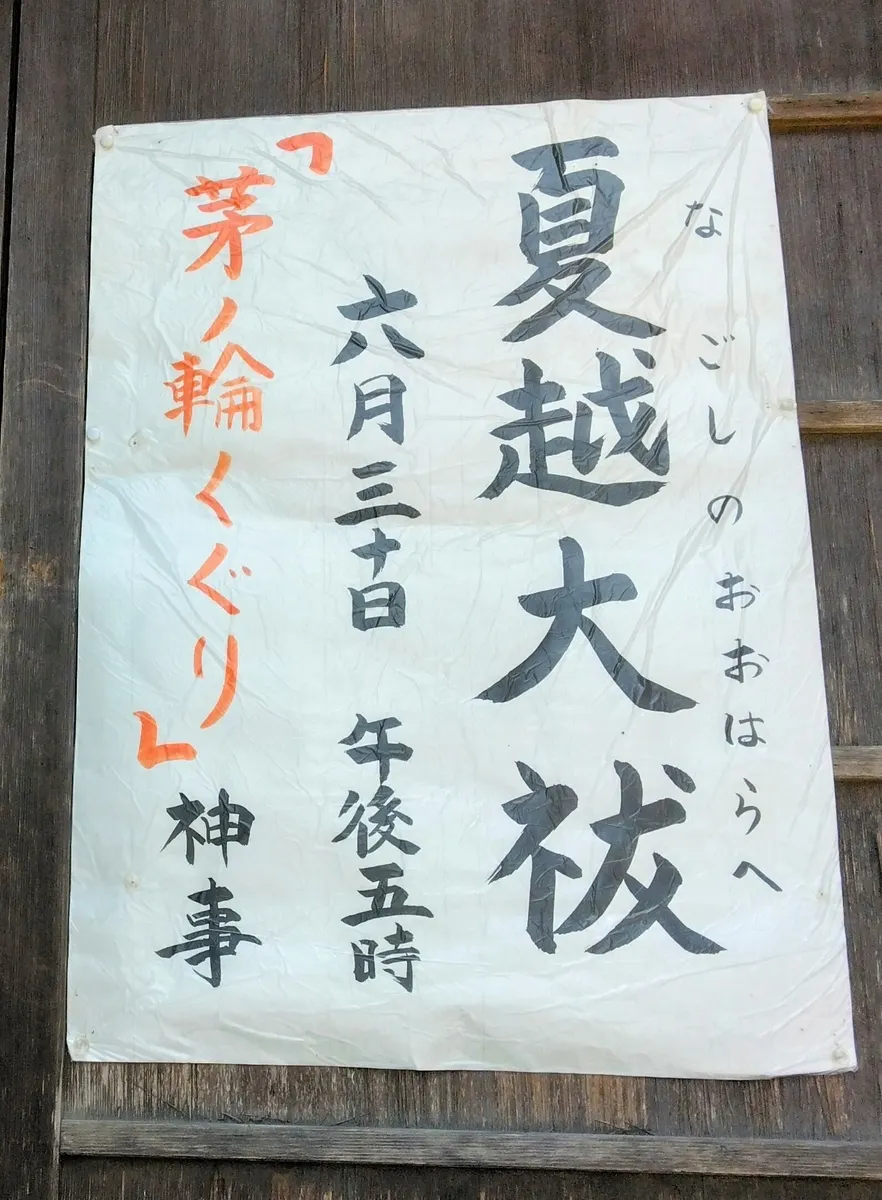 なごしのおおはらへ
夏越大祓
六月三十日 午後五時
「茅ノ輪くぐり」神事